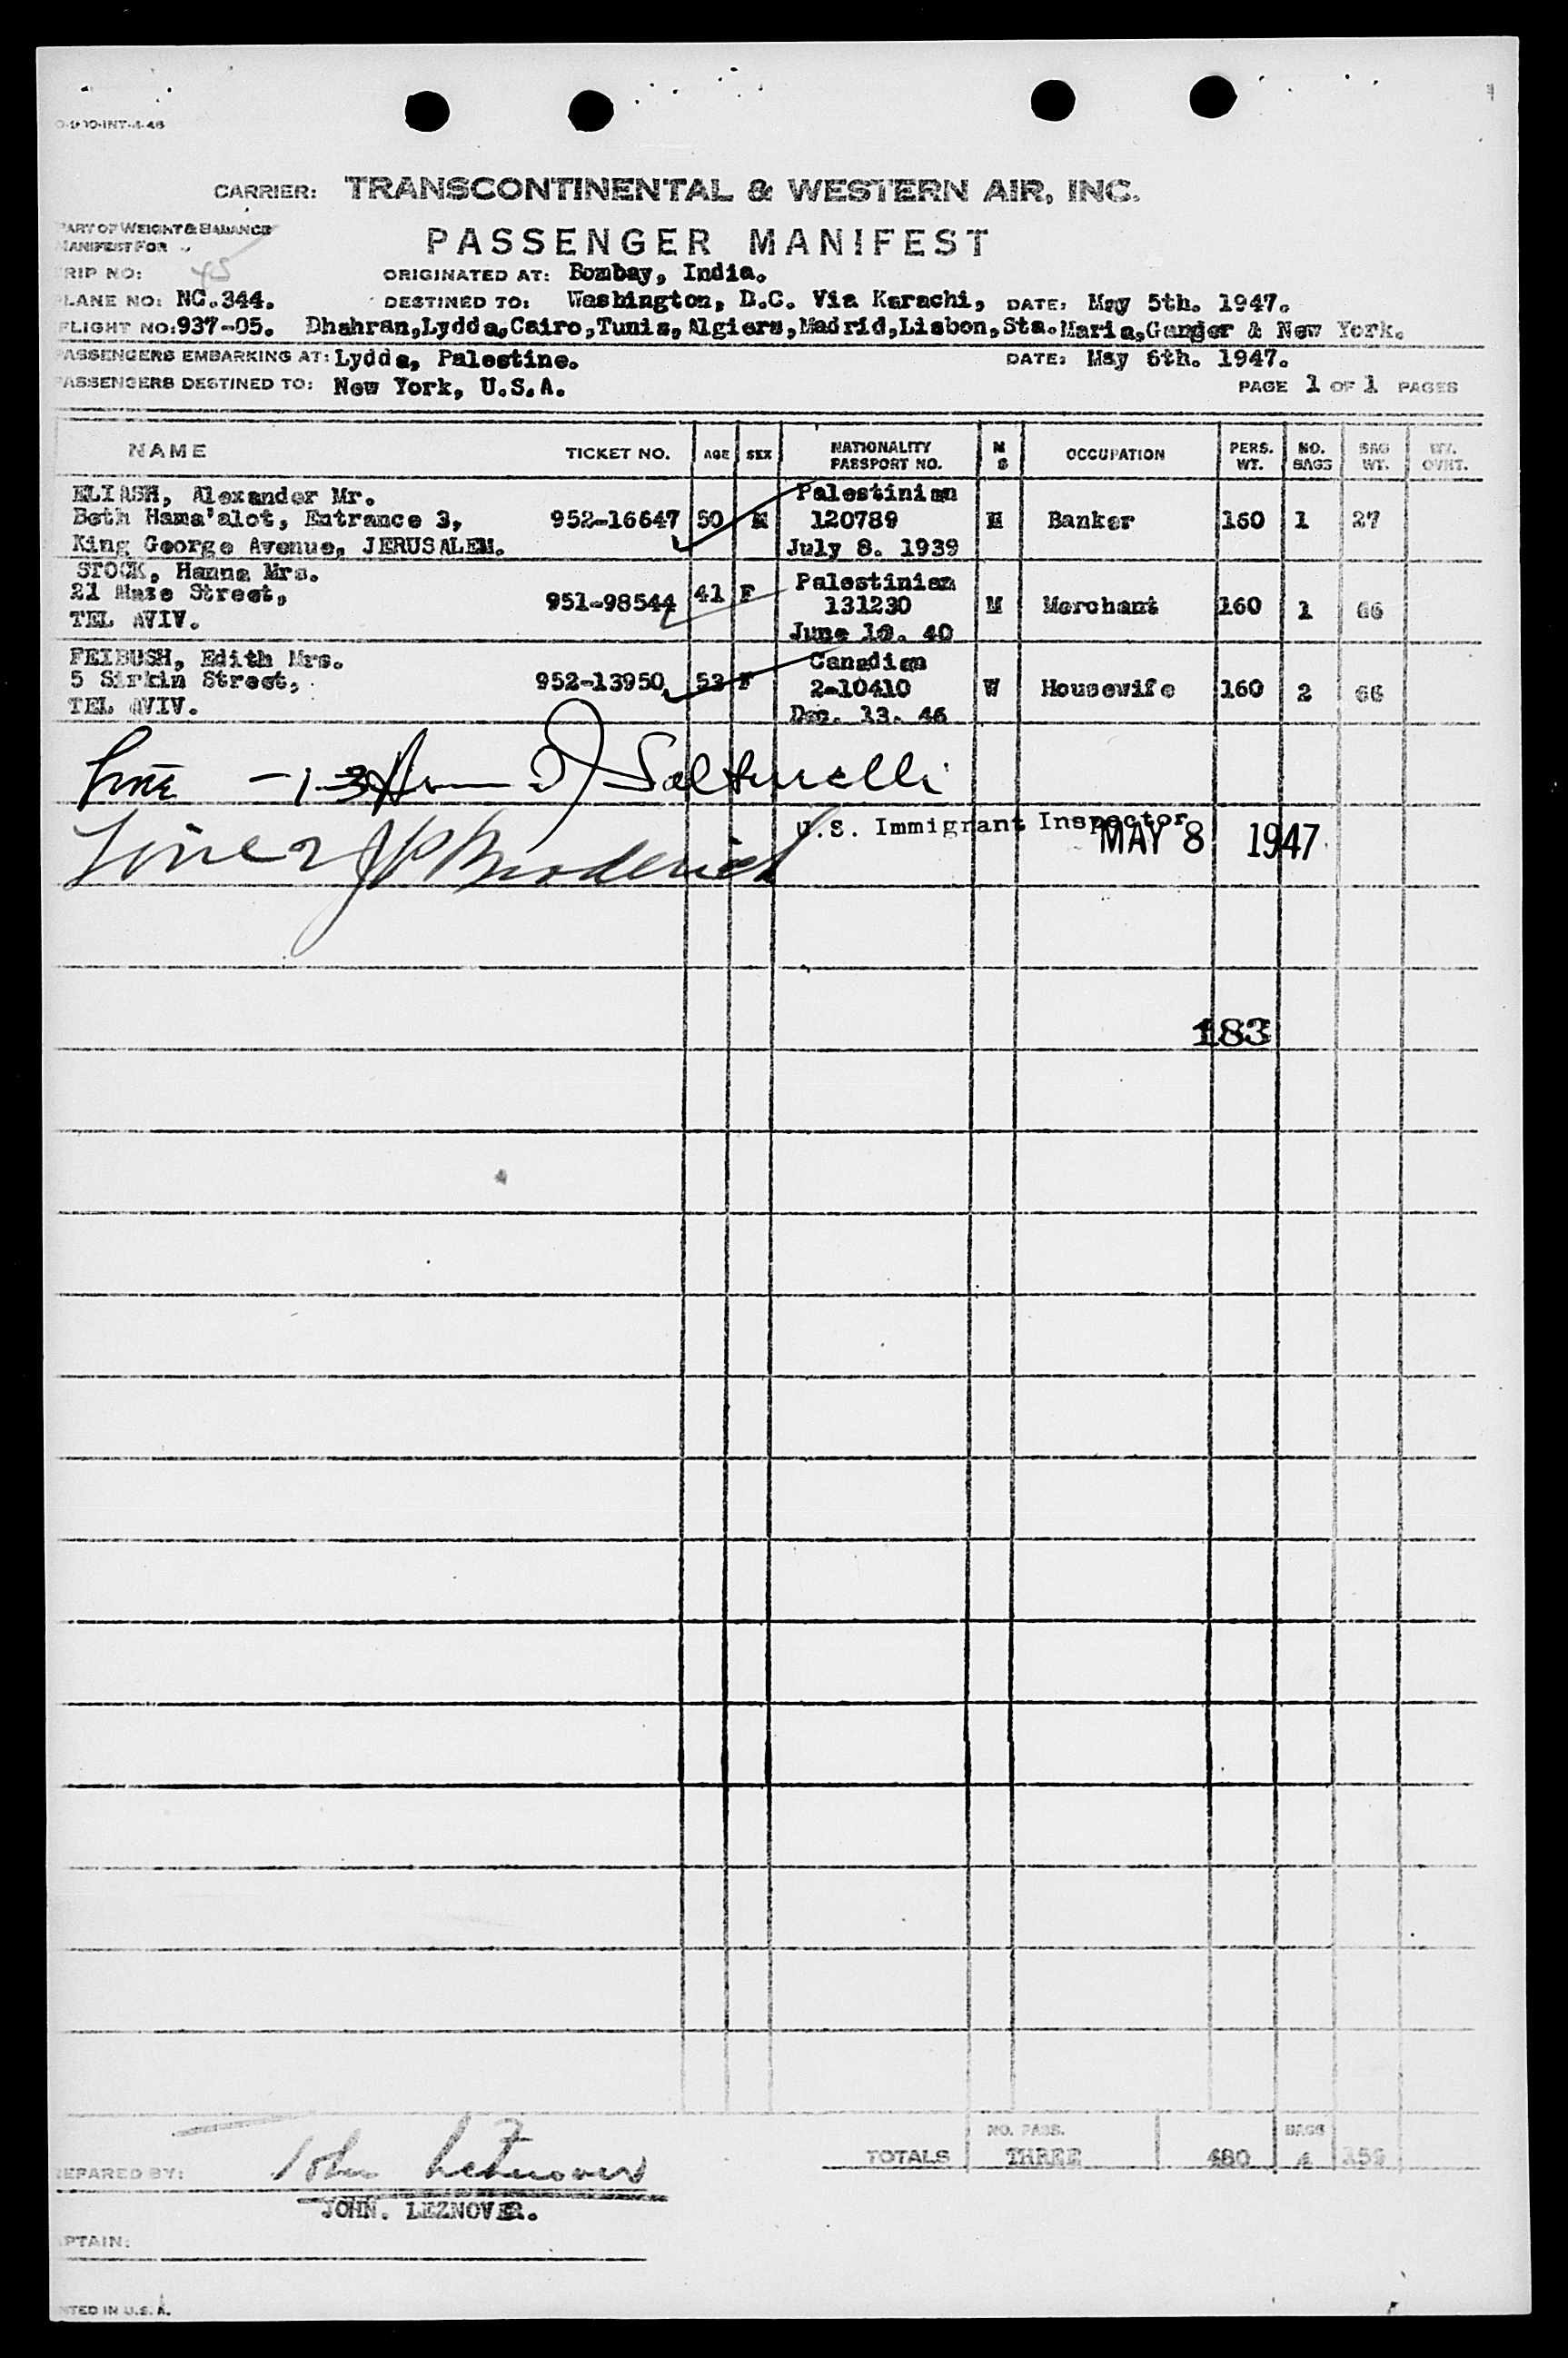 CARRIER: TRANSCONTINENTAL & WESTERN AIR, INC.
PART OF WEIGHT & BALANCE
MANIFEST FOR
PASSENGER MANIFEST
TRIP NO: 45 ORIGINATED AT: Bombay, India.
PLANE NO: NC.344. DESTINED TO: Washington, D.C. Via Karachi, DATE: May 5th. 1947.
FLIGHT NO: 937-05. Dhahran,Lydda,Cairo,Tunis,Algiers,Madrid,Lisbon,Sta.Maria,Gander & New York.
PASSENGERS EMBARKING AT: Lydda, Palestine. DATE: May 6th. 1947.
PASSENGERS DESTINED TO: New York, U.S.A. PAGE 1 OF 1 PAGES
NAME TICKET NO. AGE SEX NATIONALITY PASSPORT NO. M S OCCUPATION PERS. WT. NO. BAGS BAG WT. WT. OVHT.
ELIASH, Alexander Mr. Palestinian
Beth Hama'alot, Entrance 3, 952-16647 50 M 120789 M Banker 160 1 27
King George Avenue, JERUSALEM. July 8. 1939
STOCK, Hanna Mrs. Palestinian
21 Maze Street, 951-98544 41 F 131230 M Merchant 160 1 66
TEL AVIV. June 40
FEIBUSH, Edith Mrs. Canadian
5 Sirkin Street, 952-13950 53 F 2-10410 W Housewife 160 2 66
TEL AVIV. Dec. 13. 46
Line -1-3
U.S. Immigrant Inspector
Line 2 JP Broderick MAY 8 1947
183
NO. PASS. BAGS
TOTALS THREE 480 4 159
PREPARED BY: John Leznover
JOHN. LEZNOVER.
CAPTAIN:
PRINTED IN U.S.A.